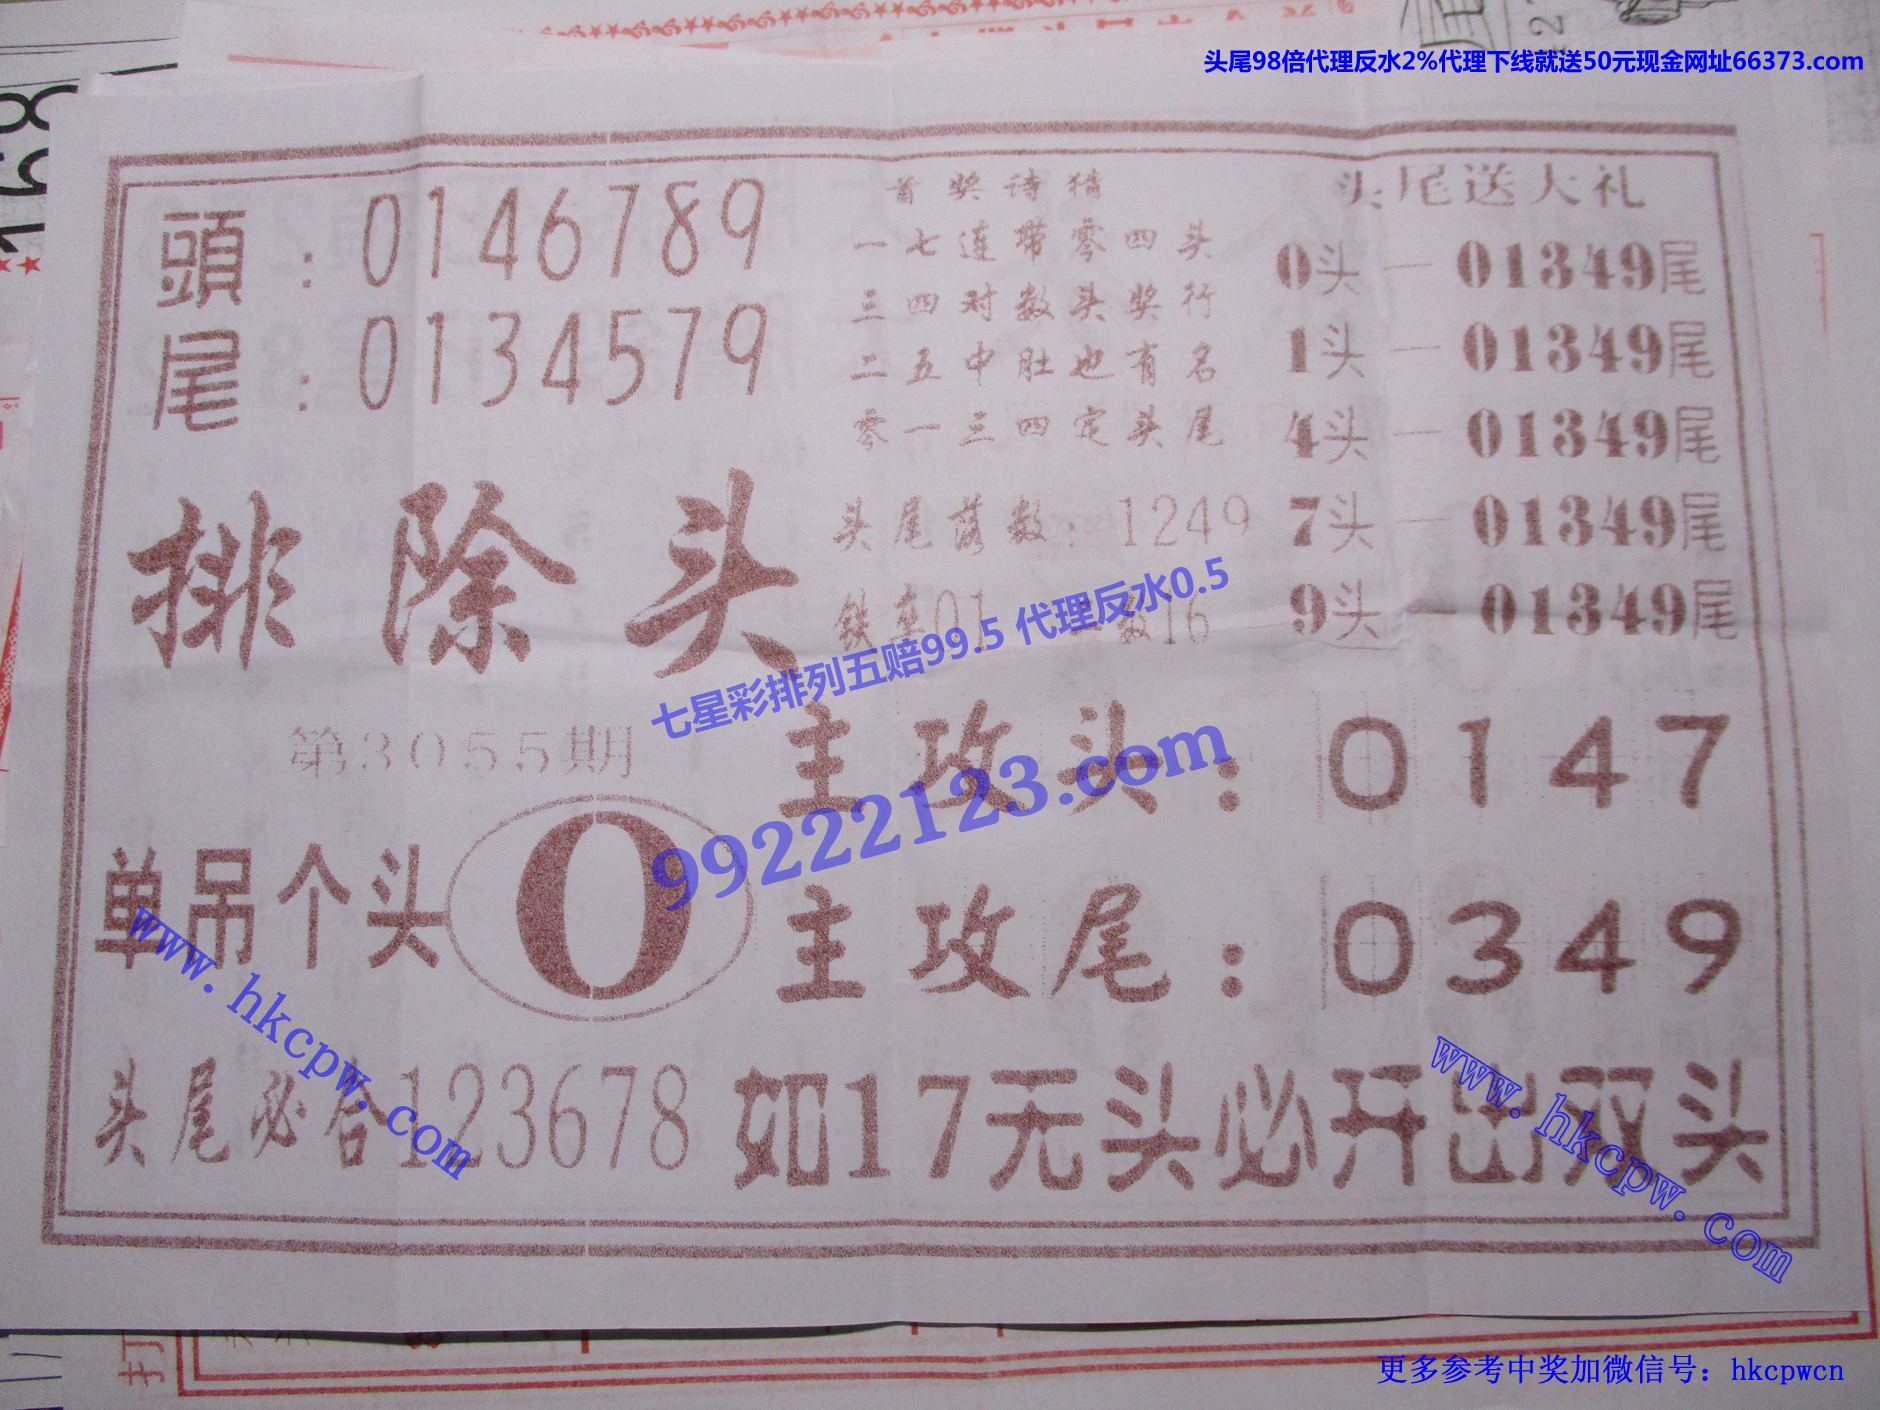 头尾98倍代理反水2%代理下线就送50元现金网址66373.com
頭：0146789
尾：0134579
首奖诗猜
一七连带零四头
三四对数头奖行
二五中肚也有名
零一三四定头尾
头尾送大礼
0头—01349尾
1头—01349尾
4头—01349尾
7头—01349尾
9头—01349尾
排除头
头尾落数：1249
铁率01 数16
七星彩排列五赔99.5 代理反水0.5
99222123.com
第3055期
主攻头：0147
单吊个头 0
主攻尾：0349
头尾必合123678
如17无头必开出双头
www.hkcpw.com
www.hkcpw.com
更多参考中奖加微信号：hkcpwcn